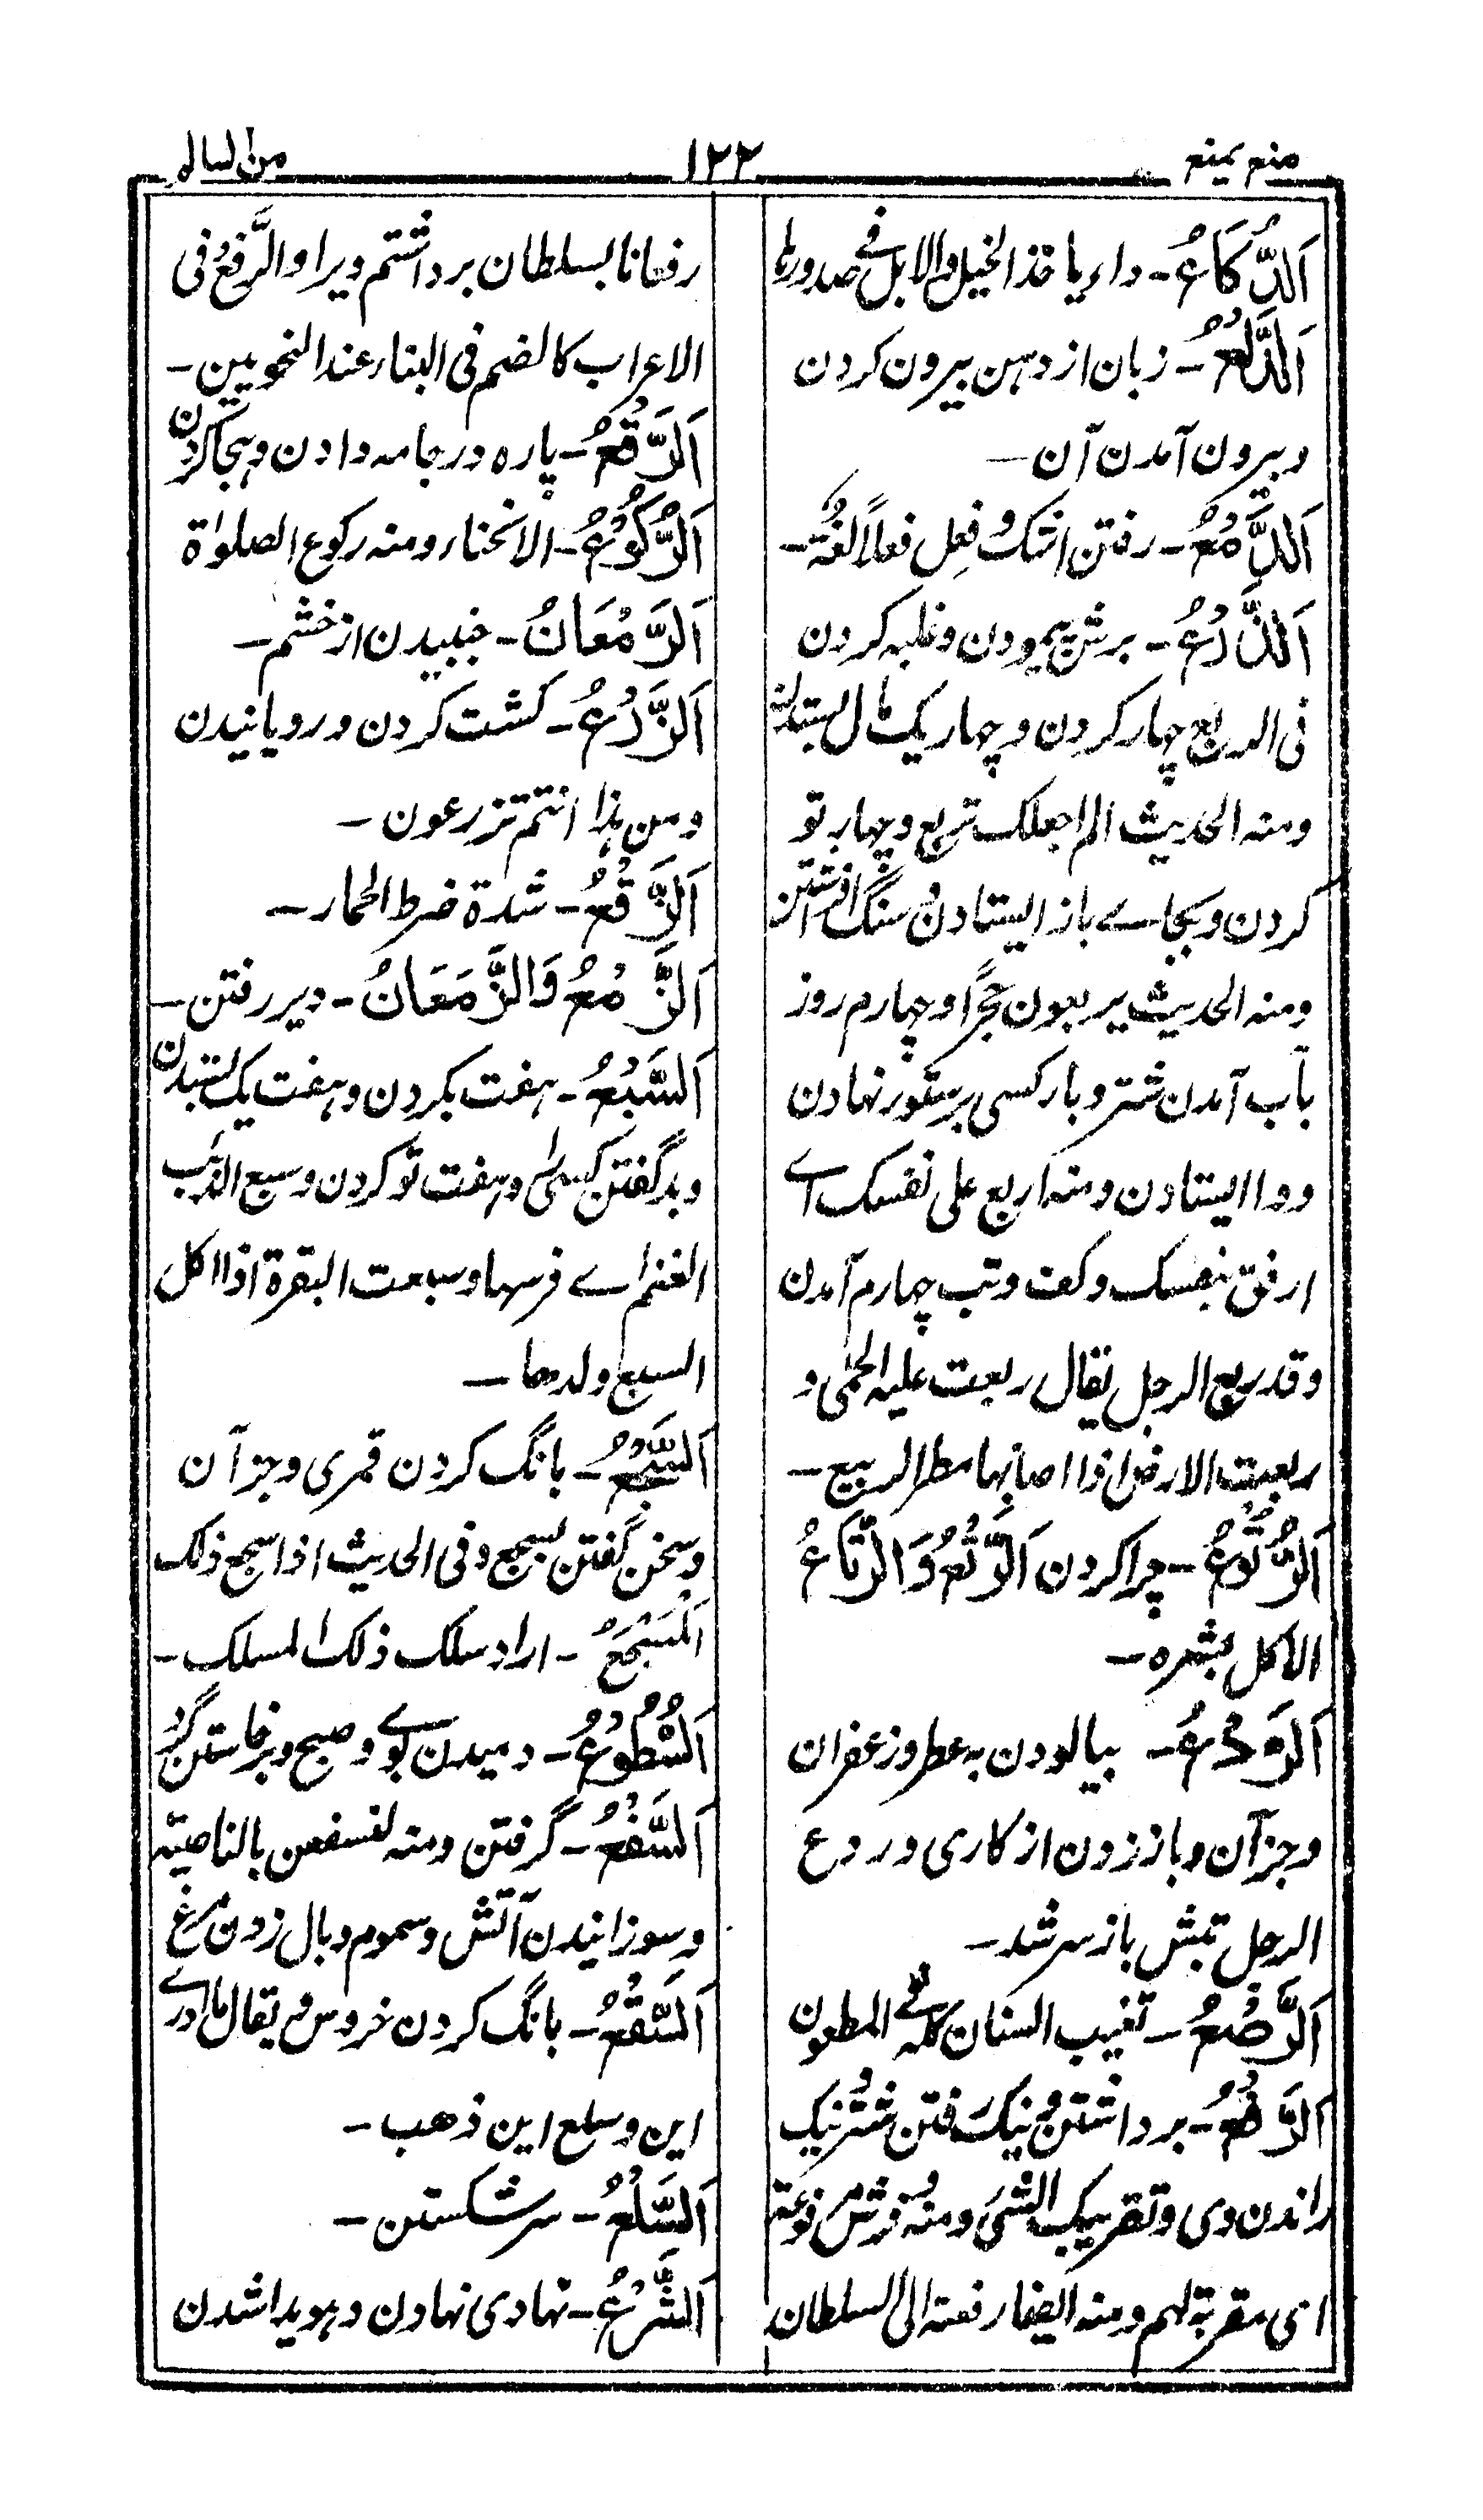 منع يمنع
١٢٢
من السالم
اَلدُّكَاعُ ـ داء ياخذ الخيل والابل فے صدورها
اَلدَّلْعُ ـ زبان از دہن بیرون کردن
و بیرون آمدن آن ـ
اَلدَّمْعُ ـ رفتن اشک و فِعل فعلاً لغةٌ ـ
اَلذَّرْعُ ـ برش پیمودن و غلبه کردن
فی الربع چهار کردن و چهار یک مال بستدن
ومنه الحديث الم اجعلک تربع و چهار تو
کردن و بجاے باز ایستادن و سنگ افراشتن
ومنه الحديث يربعون حجرًا و چهارم روز
بآب آمدن شتر و بار کسی بر ستور نهادن
و وا ایستادن ومنه اربع علی نفسک اے
ارفق بنفسک وکف و تب چهارم آمدن
وقد ربع الرجل يقال ربعت عليه الحمّى و
ربعت الارض اذا اصابها مطر الربيع ـ
اَلرُّتُوْعُ ـ چرا کردن اَلرَّتْعُ وَالرِّتَاعُ
الاکل بشره ـ
اَلرَّدْعُ ـ بیالودن به عطر و زعفران
و جز آن و باز زدن از کاری و ردع
الرجل تبش باز سر شد ـ
اَلرَّصْعُ ـ تغییب السنان کله فے المطعون
اَلرَّفْعُ ـ برداشتن و نیک رفتن شتر و نیک
راندن وی و تقریبک الشیٔ ومنه و فرش مرفوعة
ای مقربة لهم ومنه ایضا رفعته الى السلطان
رفعانا بسلطان برداشتم ویرا والرَّفع فی
الاعراب کالضم فی البناء عند النحویین ـ
اَلرَّقْعُ ـ پاره در جامه دادن و هجا کردن
اَلرُّكُوْعُ ـ الانحناء ومنه رکوع الصلوٰة
اَلرَّمَعَانُ ـ جنبیدن از خشم ـ
اَلزَّرْعُ ـ کشت کردن و رویانیدن
ومن هذا انتم تزرعون ـ
اَلزَّقْعُ ـ شدة ضرط الحمار ـ
اَلزَّمْعُ وَالزَّمَعَانُ ـ دیر رفتن ـ
اَلسَّبْعُ ـ هفت بکردن و هفت یک ستیدن
و بد گفتن کسی را و هفت تو کردن و سبع الذئب
الغنم اے فرسها و سبعت البقرة اذا اکل
السبع ولدها ـ
اَلسَّجْعُ ـ بانگ کردن قمری و جز آن
و سخن گفتن بسجع و فی الحديث اذا سجع ذلک
اَلْمَسْجَعُ ـ اراد سلک ذلک المسلک ـ
اَلسُّطُوْعُ ـ دمیدن بوے و صبح و برخاستن گرد
اَلسَّفْعُ ـ گرفتن ومنه لنسفعن بالناصیة
و سوزانیدن آتش و سموم و بال زدن مرغ
اَلسَّقْعُ ـ بانگ کردن خروس و یقال ما ادرے
این و سلع این ذهب ـ
اَلسَّلْعُ ـ سر شکستن ـ
اَلشَّرْعُ ـ نهادی نهادن و هویدا شدن